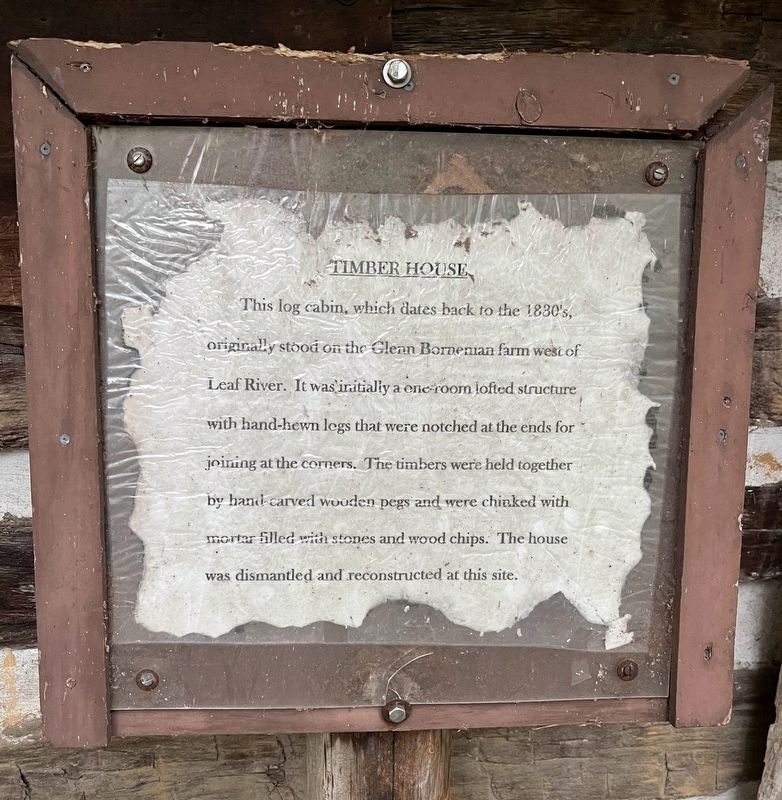 TIMBER HOUSE
This log cabin, which dates back to the 1830's,
originally stood on the Glenn Borneman farm west of
Leaf River. It was initially a one-room lofted structure
with hand-hewn logs that were notched at the ends for
joining at the corners. The timbers were held together
by hand-carved wooden pegs and were chinked with
mortar filled with stones and wood chips. The house
was dismantled and reconstructed at this site.